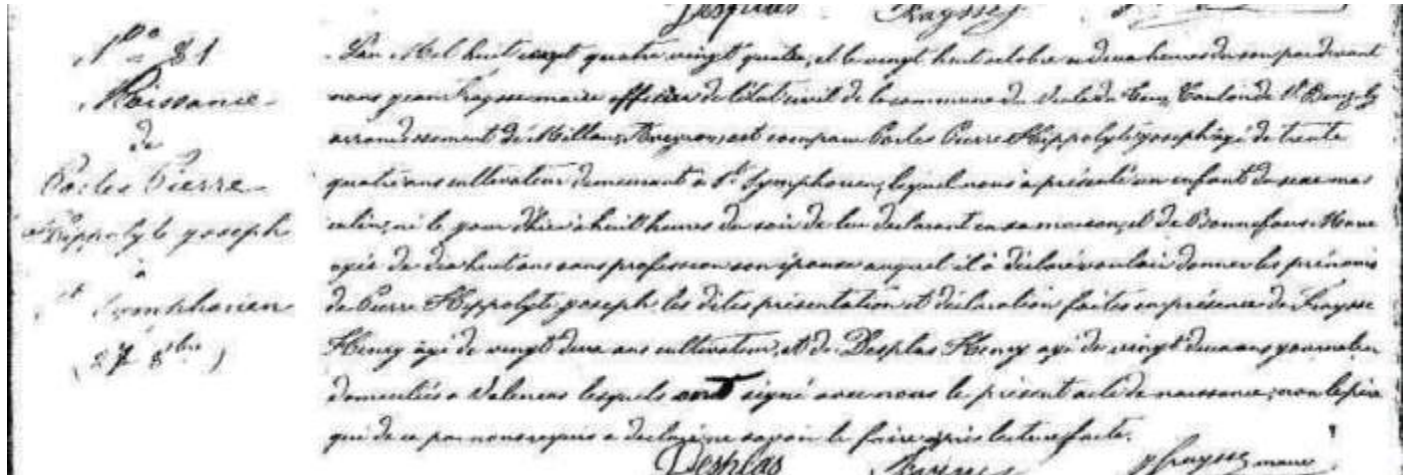 Desplas Fraysse
N° 81
Naissance
de
Carles Pierre
Hippolyte joseph
à
St Symphorien
(27 8bre)
L'an Mil huit cent quatre vingt quatre, et le vingt huit octobre à deux heures du soir par devant
nous jean Fraysse maire officier de l'état civil de la commune du Canton de
arrondissement de Millau, Aveyron, est comparu Carles Pierre Hippolyte joseph âgé de trente
quatre ans cultivateur demeurant à St Symphorien, lequel nous a présenté un enfant du sexe mas
culin, né le jour d'hier à huit heures du soir de lui déclarant en sa maison, et de Bonnefous Marie
agée de dix huit ans sans profession son épouse auquel il a déclaré vouloir donner les prénoms
de Pierre Hippolyte joseph. les dites présentation et déclaration faites en présence de Fraysse
Henry âgé de vingt deux ans cultivateur, et de Desplas Henry agé de vingt deux ans journalier
domiciliés a Valencas lesquels ont signé avec nous le présent acte de naissance, non le père
qui de ce par nous requis a déclaré ne savoir le faire après lecture faite.
Desplas Fraysse jFraysse maire